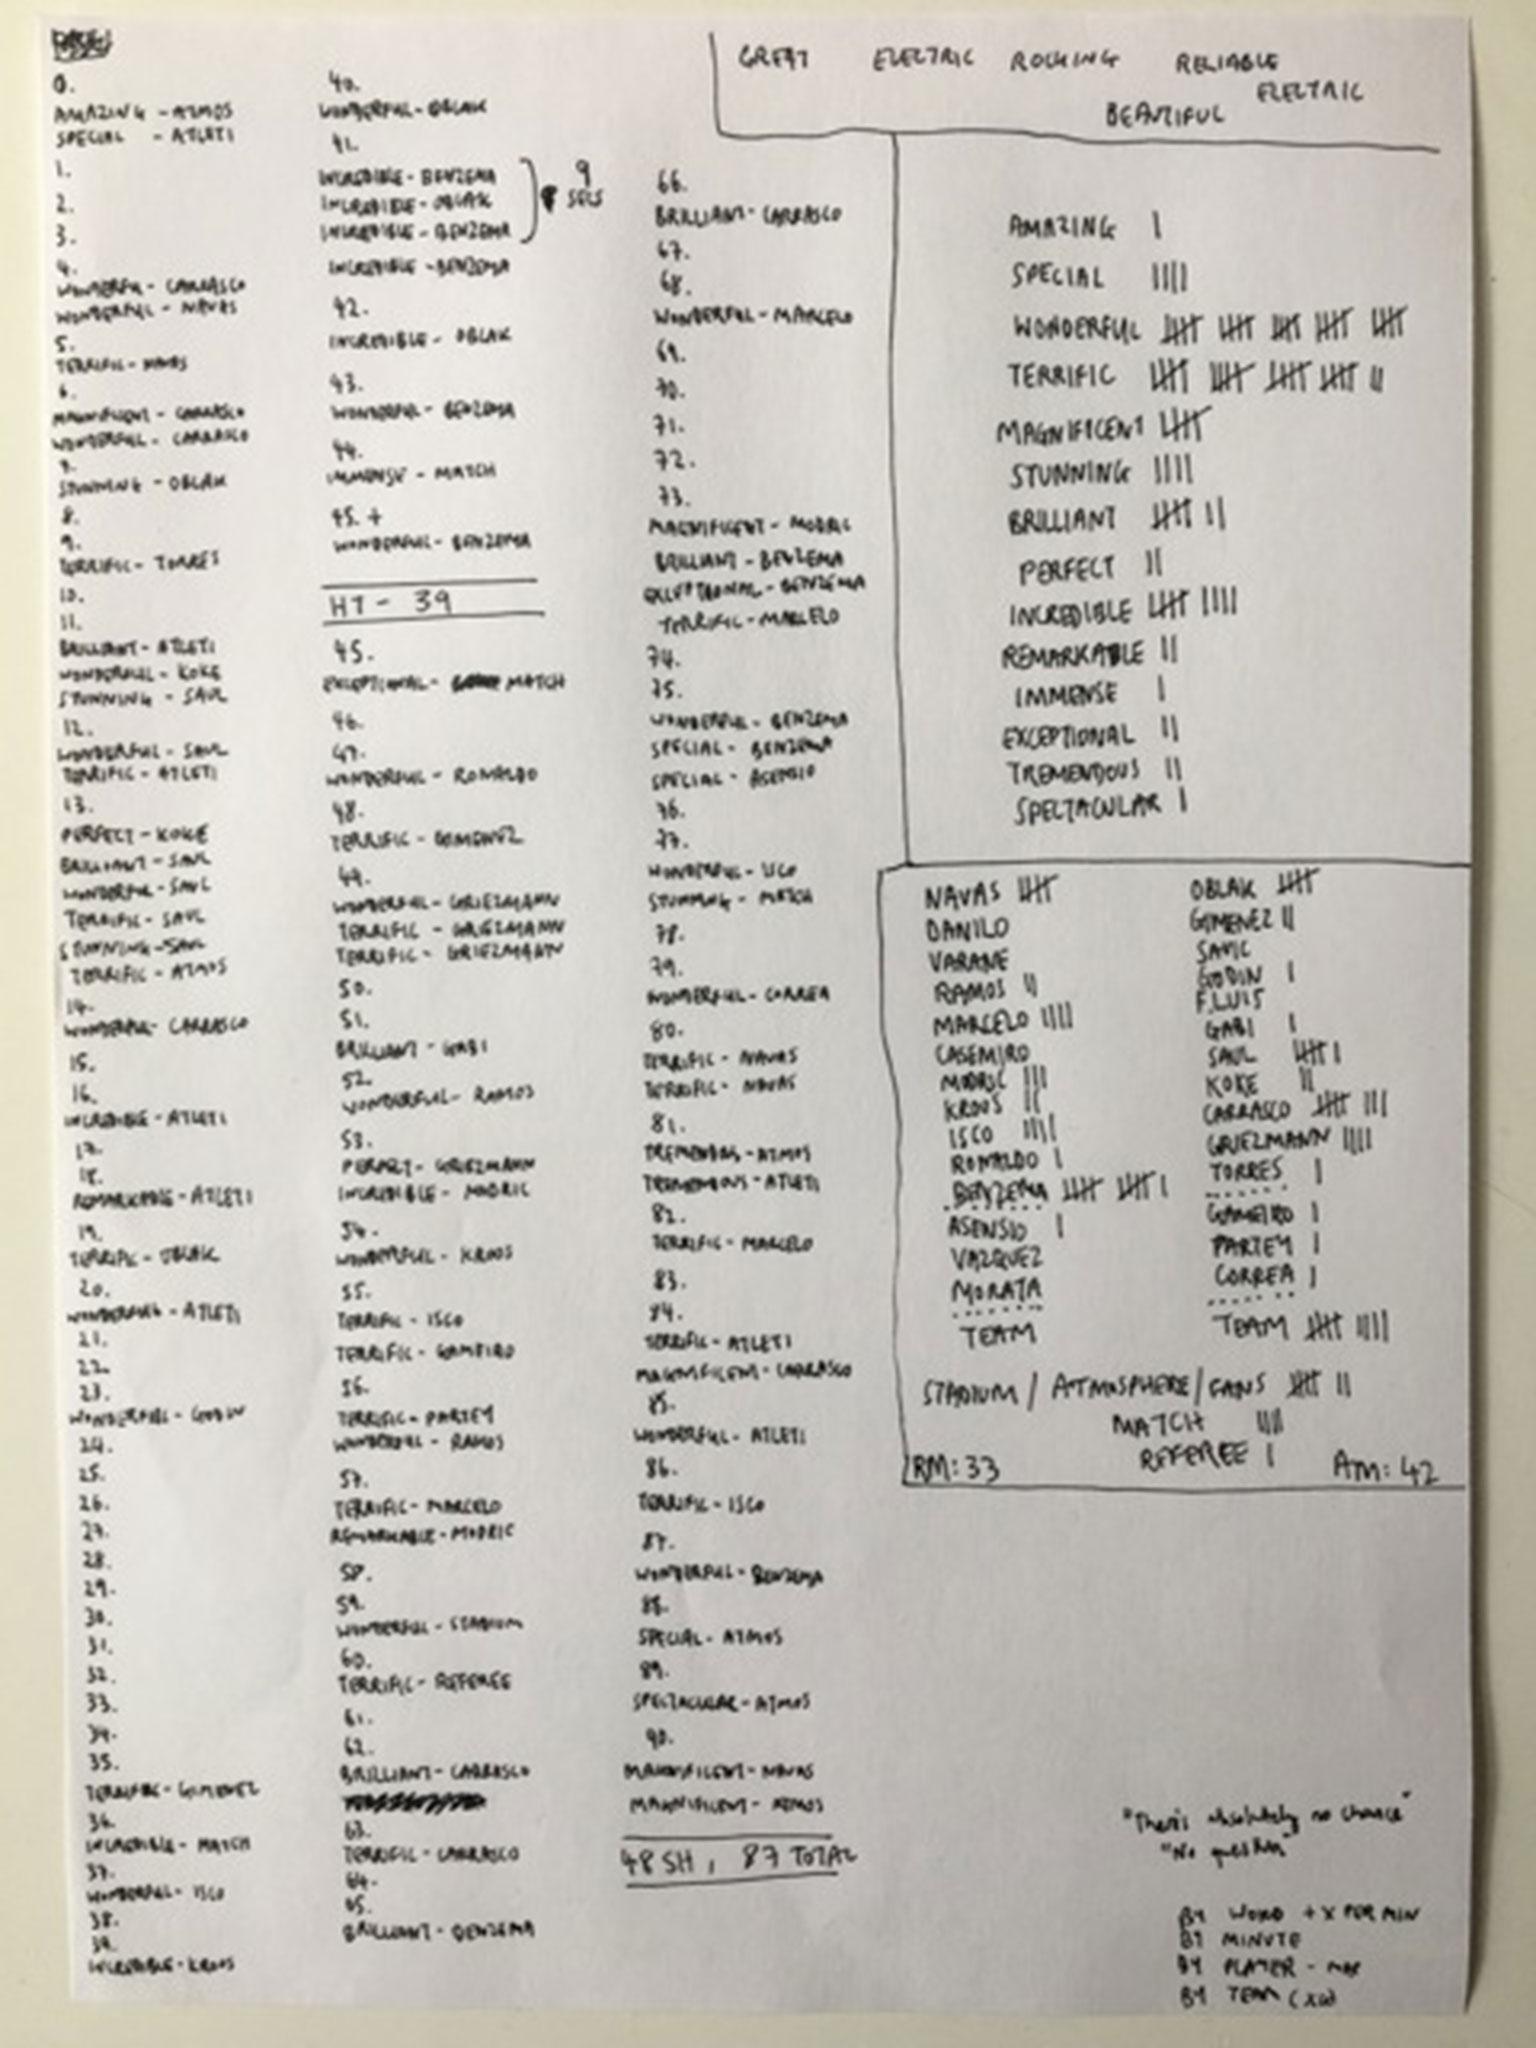 0.
AMAZING - ATMOS
SPECIAL - ATLETI
1.
2.
3.
4.
WONDERFUL - CARRASCO
WONDERFUL - NAVAS
5.
TERRIFIC - NAVAS
6.
MAGNIFICENT - CARRASCO
WONDERFUL - CARRASCO
7.
STUNNING - OBLAK
8.
9.
TERRIFIC - TORRES
10.
11.
BRILLIANT - ATLETI
WONDERFUL - KOKE
STUNNING - SAUL
12.
WONDERFUL - SAUL
TERRIFIC - ATLETI
13.
PERFECT - KOKE
BRILLIANT - SAUL
WONDERFUL - SAUL
TERRIFIC - SAUL
STUNNING - SAUL
TERRIFIC - ATMOS
14.
WONDERFUL - CARRASCO
15.
16.
INCREDIBLE - ATLETI
17.
18.
REMARKABLE - ATLETI
19.
TERRIFIC - OBLAK
20.
WONDERFUL - ATLETI
21.
22.
23.
WONDERFUL - GODIN
24.
25.
26.
27.
28.
29.
30.
31.
32.
33.
34.
35.
TERRIFIC - GIMENEZ
36.
INCREDIBLE - MATCH
37.
WONDERFUL - ISCO
38.
39.
INCREDIBLE - KROOS
40.
WONDERFUL - OBLAK
41.
INCREDIBLE - BENZEMA
INCREDIBLE - OBLAK
INCREDIBLE - BENZEMA
9 SECS
INCREDIBLE - BENZEMA
42.
INCREDIBLE - OBLAK
43.
WONDERFUL - BENZEMA
44.
IMMENSE - MATCH
45. +
WONDERFUL - BENZEMA
HT - 39
45.
EXCEPTIONAL - MATCH
46.
47.
WONDERFUL - RONALDO
48.
TERRIFIC - GIMENEZ
49.
WONDERFUL - GRIEZMANN
TERRIFIC - GRIEZMANN
TERRIFIC - GRIEZMANN
50.
51.
BRILLIANT - GABI
52.
WONDERFUL - RAMOS
53.
PERFECT - GRIEZMANN
INCREDIBLE - MODRIC
54.
WONDERFUL - KROOS
55.
TERRIFIC - ISCO
TERRIFIC - GAMEIRO
56.
TERRIFIC - PARTEY
WONDERFUL - RAMOS
57.
TERRIFIC - MARCELO
REMARKABLE - MODRIC
58.
59.
WONDERFUL - STADIUM
60.
TERRIFIC - REFEREE
61.
62.
BRILLIANT - CARRASCO
63.
TERRIFIC - CARRASCO
64.
65.
BRILLIANT - BENZEMA
66.
BRILLIANT - CARRASCO
67.
68.
WONDERFUL - MARCELO
69.
70.
71.
72.
73.
MAGNIFICENT - MODRIC
BRILLIANT - BENZEMA
EXCEPTIONAL - BENZEMA
TERRIFIC - MARCELO
74.
75.
WONDERFUL - BENZEMA
SPECIAL - BENZEMA
SPECIAL - ASENSIO
76.
77.
WONDERFUL - ISCO
STUNNING - MATCH
78.
79.
WONDERFUL - CORREA
80.
TERRIFIC - NAVAS
TERRIFIC - NAVAS
81.
TREMENDOUS - ATMOS
TREMENDOUS - ATLETI
82.
TERRIFIC - MARCELO
83.
84.
TERRIFIC - ATLETI
MAGNIFICENT - CARRASCO
85.
WONDERFUL - ATLETI
86.
TERRIFIC - ISCO
87.
WONDERFUL - BENZEMA
88.
SPECIAL - ATMOS
89.
SPECTACULAR - ATMOS
90.
MAGNIFICENT - NAVAS
MAGNIFICENT - ATMOS
48 SH, 87 TOTAL
GREAT ELECTRIC ROCKING RELIABLE
ELECTRIC
BEAUTIFUL
AMAZING
SPECIAL
WONDERFUL
TERRIFIC
MAGNIFICENT
STUNNING
BRILLIANT
PERFECT
INCREDIBLE
REMARKABLE
IMMENSE
EXCEPTIONAL
TREMENDOUS
SPECTACULAR
NAVAS
DANILO
VARANE
RAMOS
MARCELO
CASEMIRO
MODRIC
KROOS
ISCO
RONALDO
BENZEMA
ASENSIO
VAZQUEZ
MORATA
TEAM
OBLAK
GIMENEZ
SAVIC
GODIN
F.LUIS
GABI
SAUL
KOKE
CARRASCO
GRIEZMANN
TORRES
GAMEIRO
PARTEY
CORREA
TEAM
STADIUM / ATMOSPHERE / FANS
MATCH
REFEREE
RM: 33
AM: 42
"There's absolutely no chance"
"No question"
BY WORD + X PER MIN
BY MINUTE
BY PLAYER -
BY TEAM